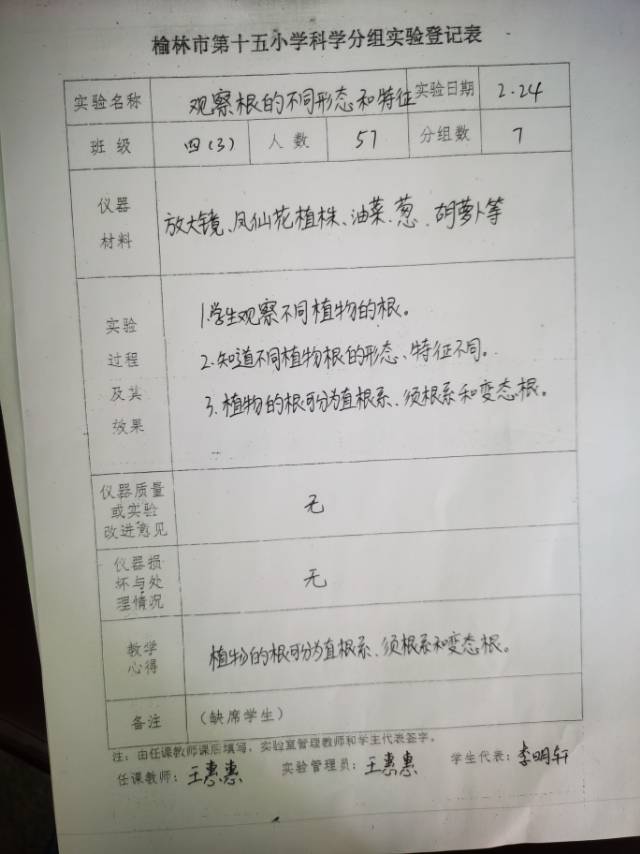 榆林市第十五小学科学分组实验登记表
实验名称 观察根的不同形态和特征 实验日期 2.24
班级 四(3) 人数 57 分组数 7
仪器
材料
放大镜、凤仙花植株、油菜、葱、胡萝卜等
实验
过程
及其
效果
1.学生观察不同植物的根。
2.知道不同植物根的形态、特征不同。
3.植物的根可分为直根系、须根系和变态根。
仪器质量
或实验
改进意见
无
仪器损
坏与处
理情况
无
教学
心得
植物的根可分为直根系、须根系和变态根。
备注 (缺席学生)
注：由任课教师课后填写，实验室管理教师和学生代表签字。
任课教师：王惠惠 实验管理员：王惠惠 学生代表：李明轩